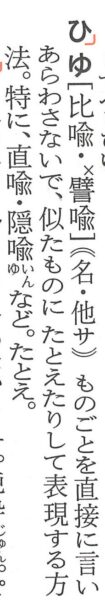 ひゆ[比喩・×譬喩]《名・他サ》 ものごとを直接に言い
あらわさないで、似たものに たとえたりして表現する方
法。特に、直喩・隠喩いんゆなど。たとえ。